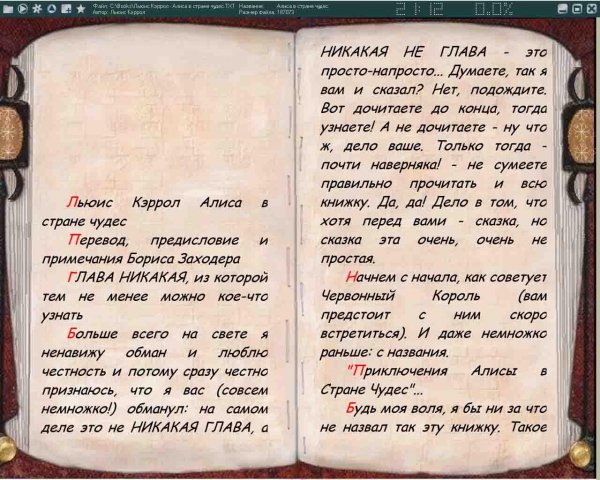 Файл: C:\Books\Льюис Кэррол - Алиса в стране чудес.TXT
Автор: Льюис Кэррол
Название: Алиса в стране чудес
Размер файла: 187873
21:12
0.0%
Льюис Кэррол Алиса в
стране чудес
Перевод, предисловие и
примечания Бориса Заходера
ГЛАВА НИКАКАЯ, из которой
тем не менее можно кое-что
узнать
Больше всего на свете я
ненавижу обман и люблю
честность и потому сразу честно
признаюсь, что я вас (совсем
немножко!) обманул: на самом
деле это не НИКАКАЯ ГЛАВА, а
НИКАКАЯ НЕ ГЛАВА - это
просто-напросто... Думаете, так я
вам и сказал? Нет, подождите.
Вот дочитаете до конца, тогда
узнаете! А не дочитаете - ну что
ж, дело ваше. Только тогда -
почти наверняка! - не сумеете
правильно прочитать и всю
книжку. Да, да! Дело в том, что
хотя перед вами - сказка, но
сказка эта очень, очень не
простая.
Начнем с начала, как советует
Червонный Король (вам
предстоит с ним скоро
встретиться). И даже немножко
раньше: с названия.
"Приключения Алисы в
Стране Чудес"...
Будь моя воля, я бы ни за что
не назвал так эту книжку. Такое